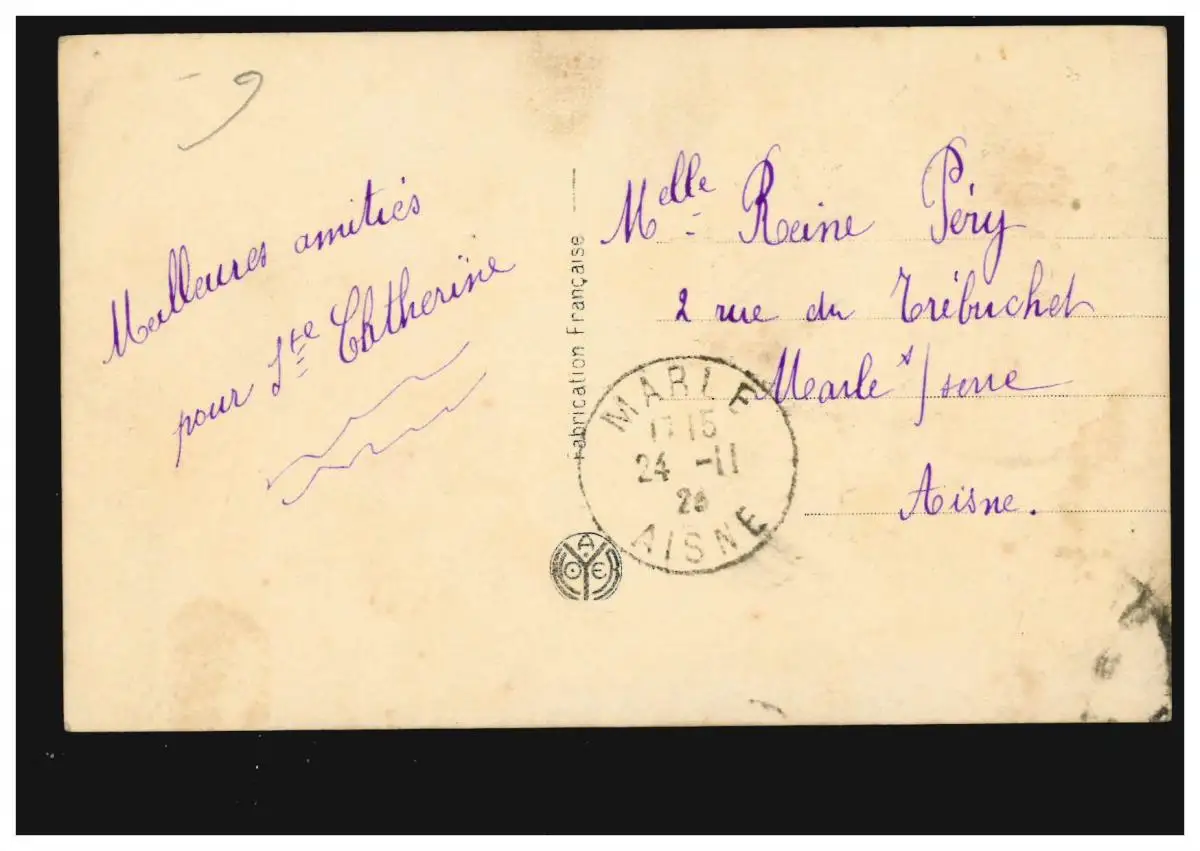 Meilleures amitiés
pour Ste Catherine
Fabrication Française
Melle Reine Péry
2 rue du Trébuchet
Marle s/ serre
Aisne.
MARLE
24 -11
AISNE